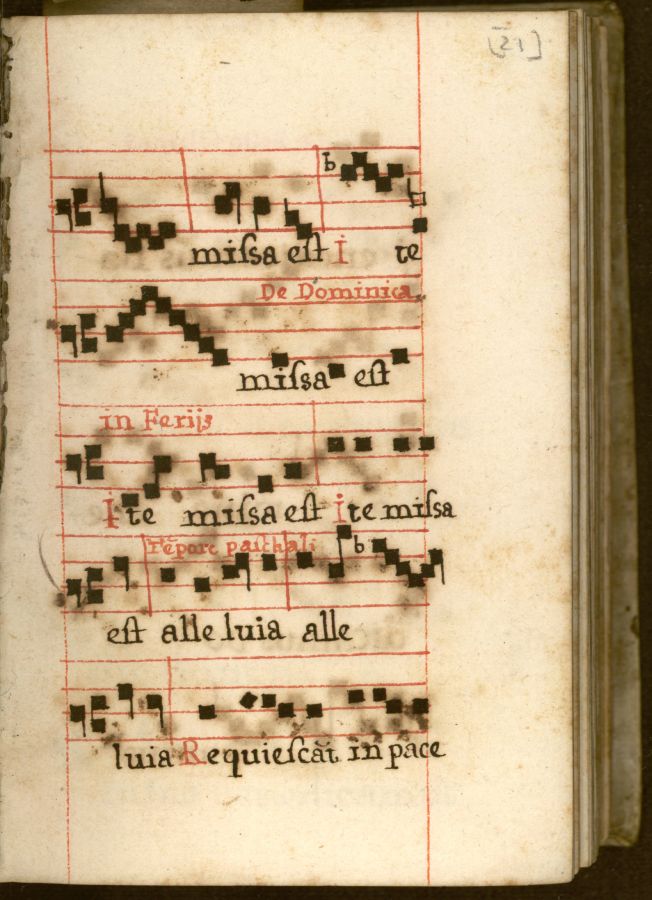 [21]
missa est Ite
De Dominica.
missa est
in Ferijs
Ite missa est ite missa
Tēpore paschali
est alleluia alle
luia Requiescāt in pace